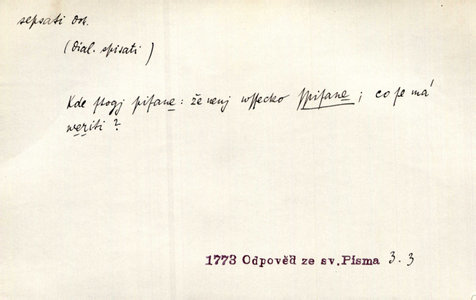 sepsati Ort.
(Dial. spisati)
Kde stogj pisane: že nenj wssecko spisane; co se má
weriti?
1773 Odpověd ze sv. Písma 3. 3